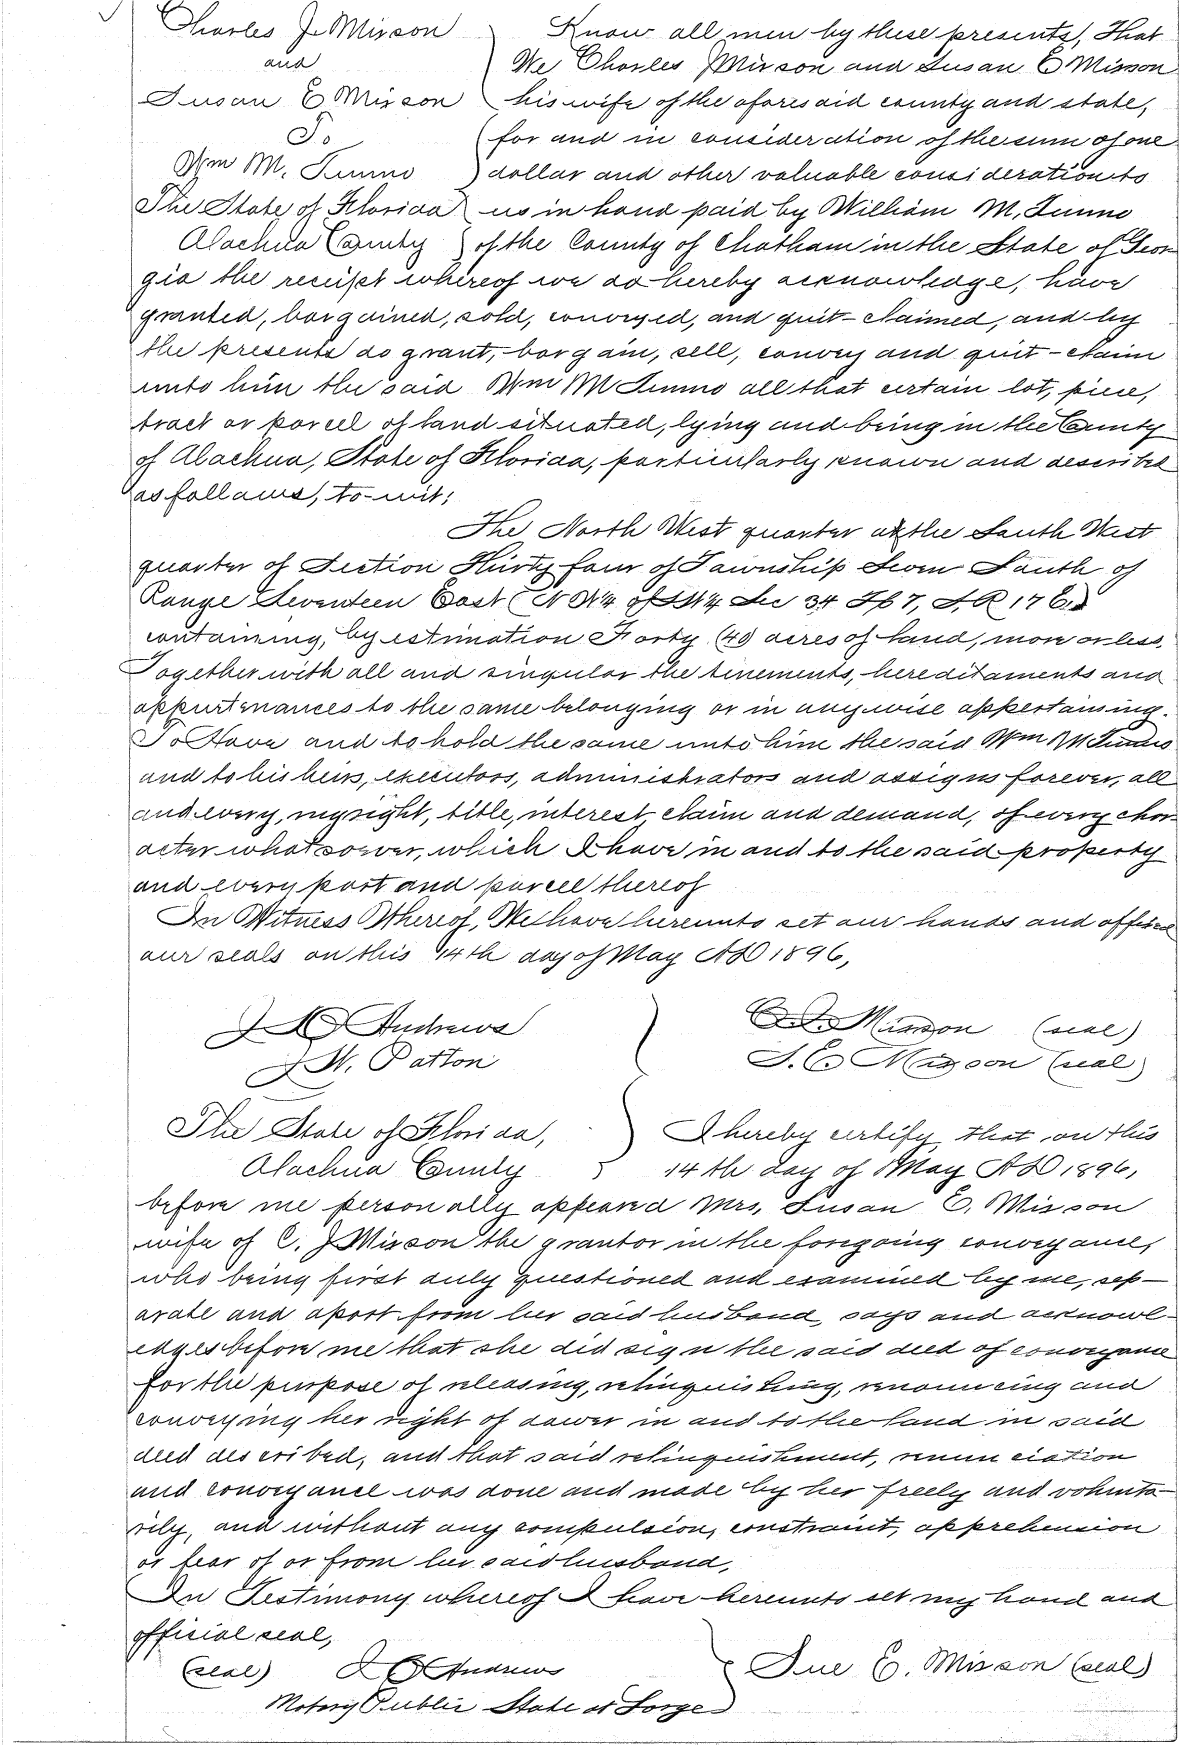 Charles J. Misson Know all men by these presents, That
and We Charles J Misson and Susan E Misson
Susan E Misson his wife of the aforesaid county and state,
To for and in consideration of the sum of one
Wm M. Tunno dollar and other valuable consideration to
The State of Florida us in hand paid by William M. Tunno
Alachua County of the County of Chatham in the State of Geor
gia the receipt whereof we do hereby acknowledge, have
granted, bargained, sold, conveyed, and quit-claimed, and by
the presents do grant, bargain, sell, convey and quit-claim
unto him the said Wm M Tunno all that certain lot, piece,
tract or parcel of land situated, lying and being in the County
of Alachua, State of Florida, particularly known and described
as follows, to-wit:
The North West quarter of the South West
quarter of Section Thirty four of Township Seven South of
Range Seventeen East (NW¼ of SW¼ Sec 34 Tp 7, S.R 17 E.)
containing, by estimation Forty (40) acres of land, more or less.
Together with all and singular the tenements, hereditaments and
appurtenances to the same belonging or in any wise appertaining.
To Have and to hold the same unto him the said Wm M Tunno
and to his heirs, executors, administrators and assigns forever, all
and every, my right, title, interest, claim and demand, of every char
acter whatsoever, which I have in and to the said property
and every part and parcel thereof
In Witness Whereof, We have hereunto set our hands and affixed
our seals on this 14th day of May AD 1896,
Andrews C. J. Misson (seal)
J W. Patton S. E. Misson (seal)
The State of Florida, I hereby certify that on this
Alachua County 14th day of May AD 1896,
before me personally appeared Mrs, Susan E. Misson
wife of C. J Misson the grantor in the foregoing conveyance,
who being first duly questioned and examined by me, sep-
arate and apart from her said husband, says and acknowl-
edges before me that she did sign the said deed of conveyance
for the purpose of releasing, relinquishing, renouncing and
conveying her right of dower in and to the land in said
deed described, and that said relinquishment, renunciation
and conveyance was done and made by her freely and volunta-
rily, and without any compulsion, constraint, apprehension
or fear of or from her said husband,
In Testimony whereof I have hereunto set my hand and
official seal,
(seal) Andrews Sue E. Misson (seal)
Notary Public State at Large